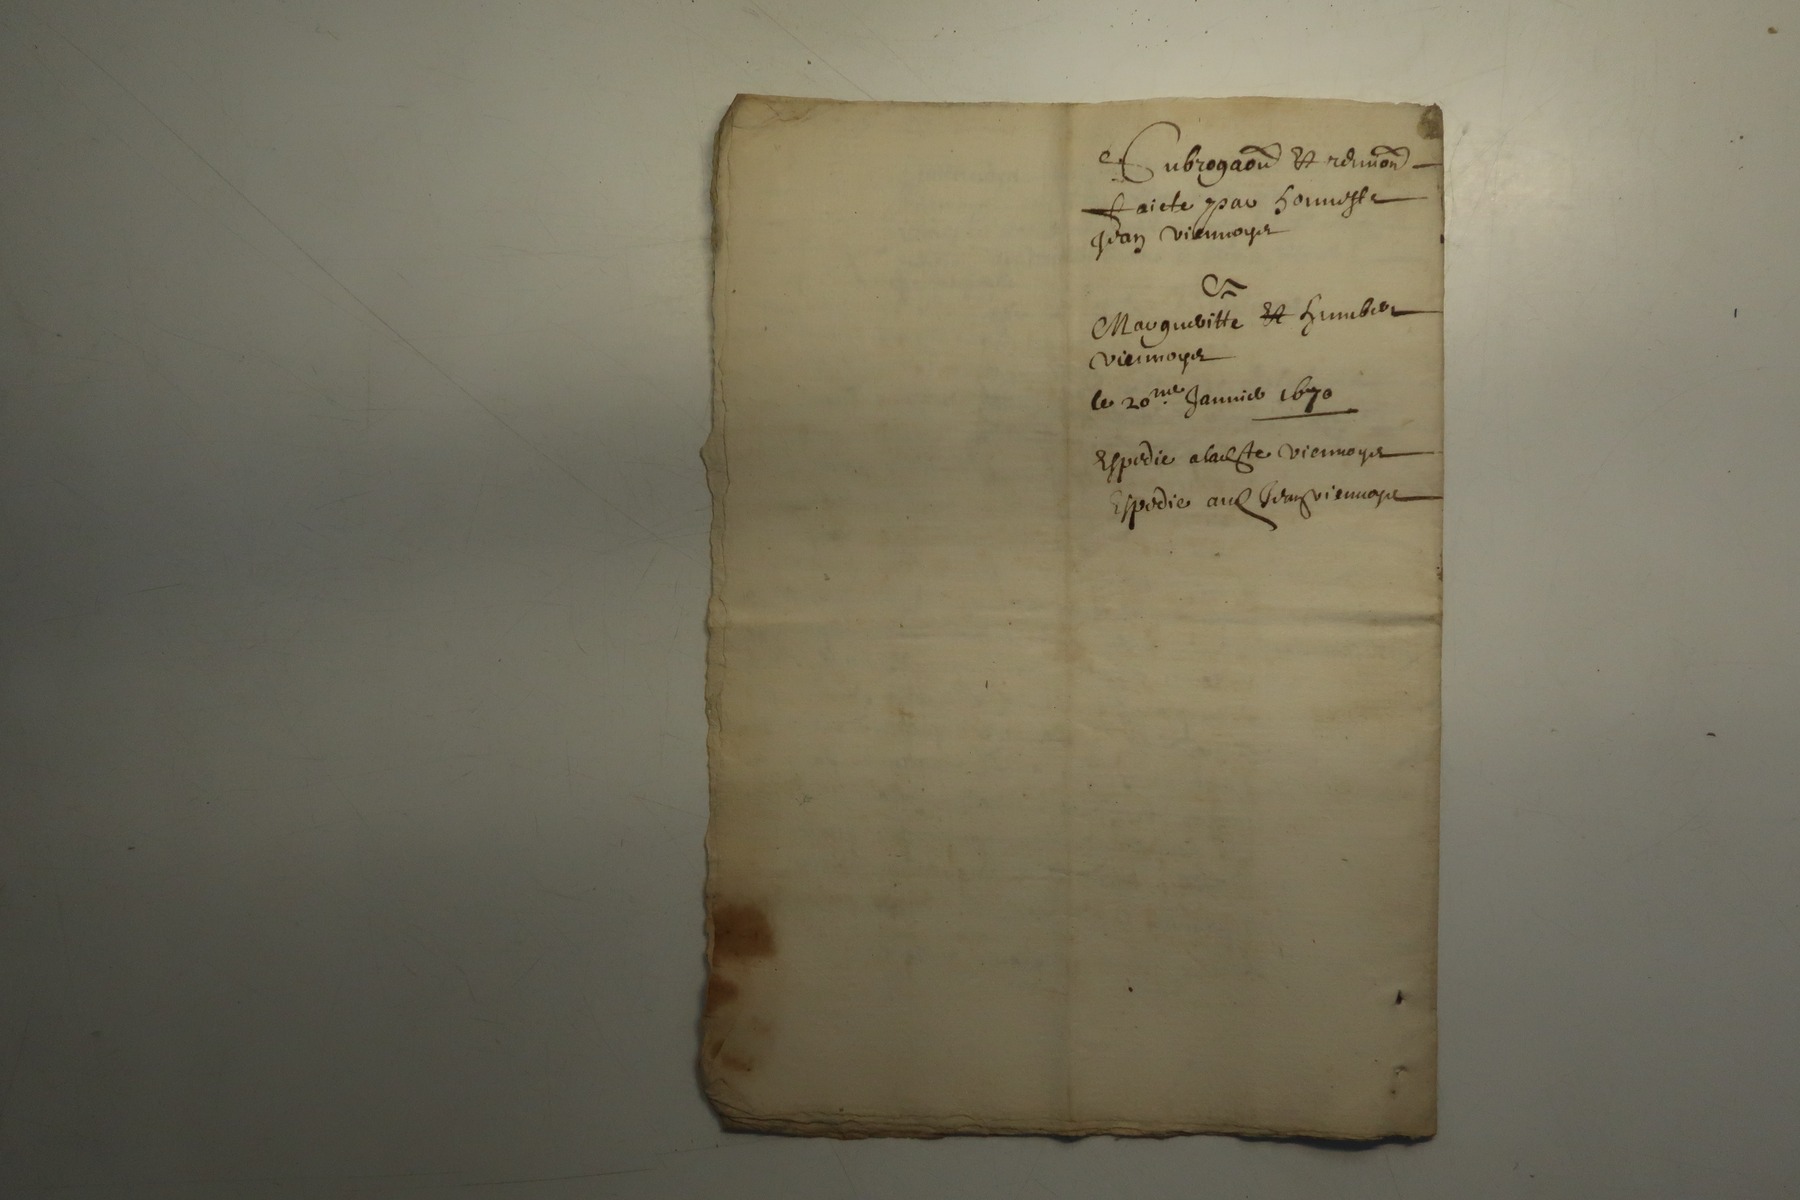 Subrogaõn Et remiõn
faicte par honneste
Jean viennoys
Et
Margueritte Et humbert
viennoys
le 20me Janvier 1670
Espedie a ladste viennoys
Espedie aud Jean viennoys